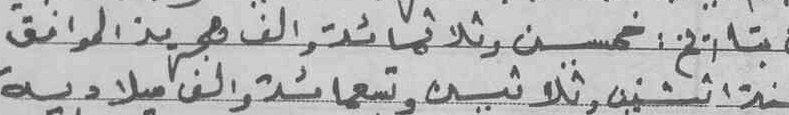 بتاريخ: خمسين وثلاثمائة والف هجرية الموافق
سنة اثنتين وثلاثين وتسعمائة والف ميلادية